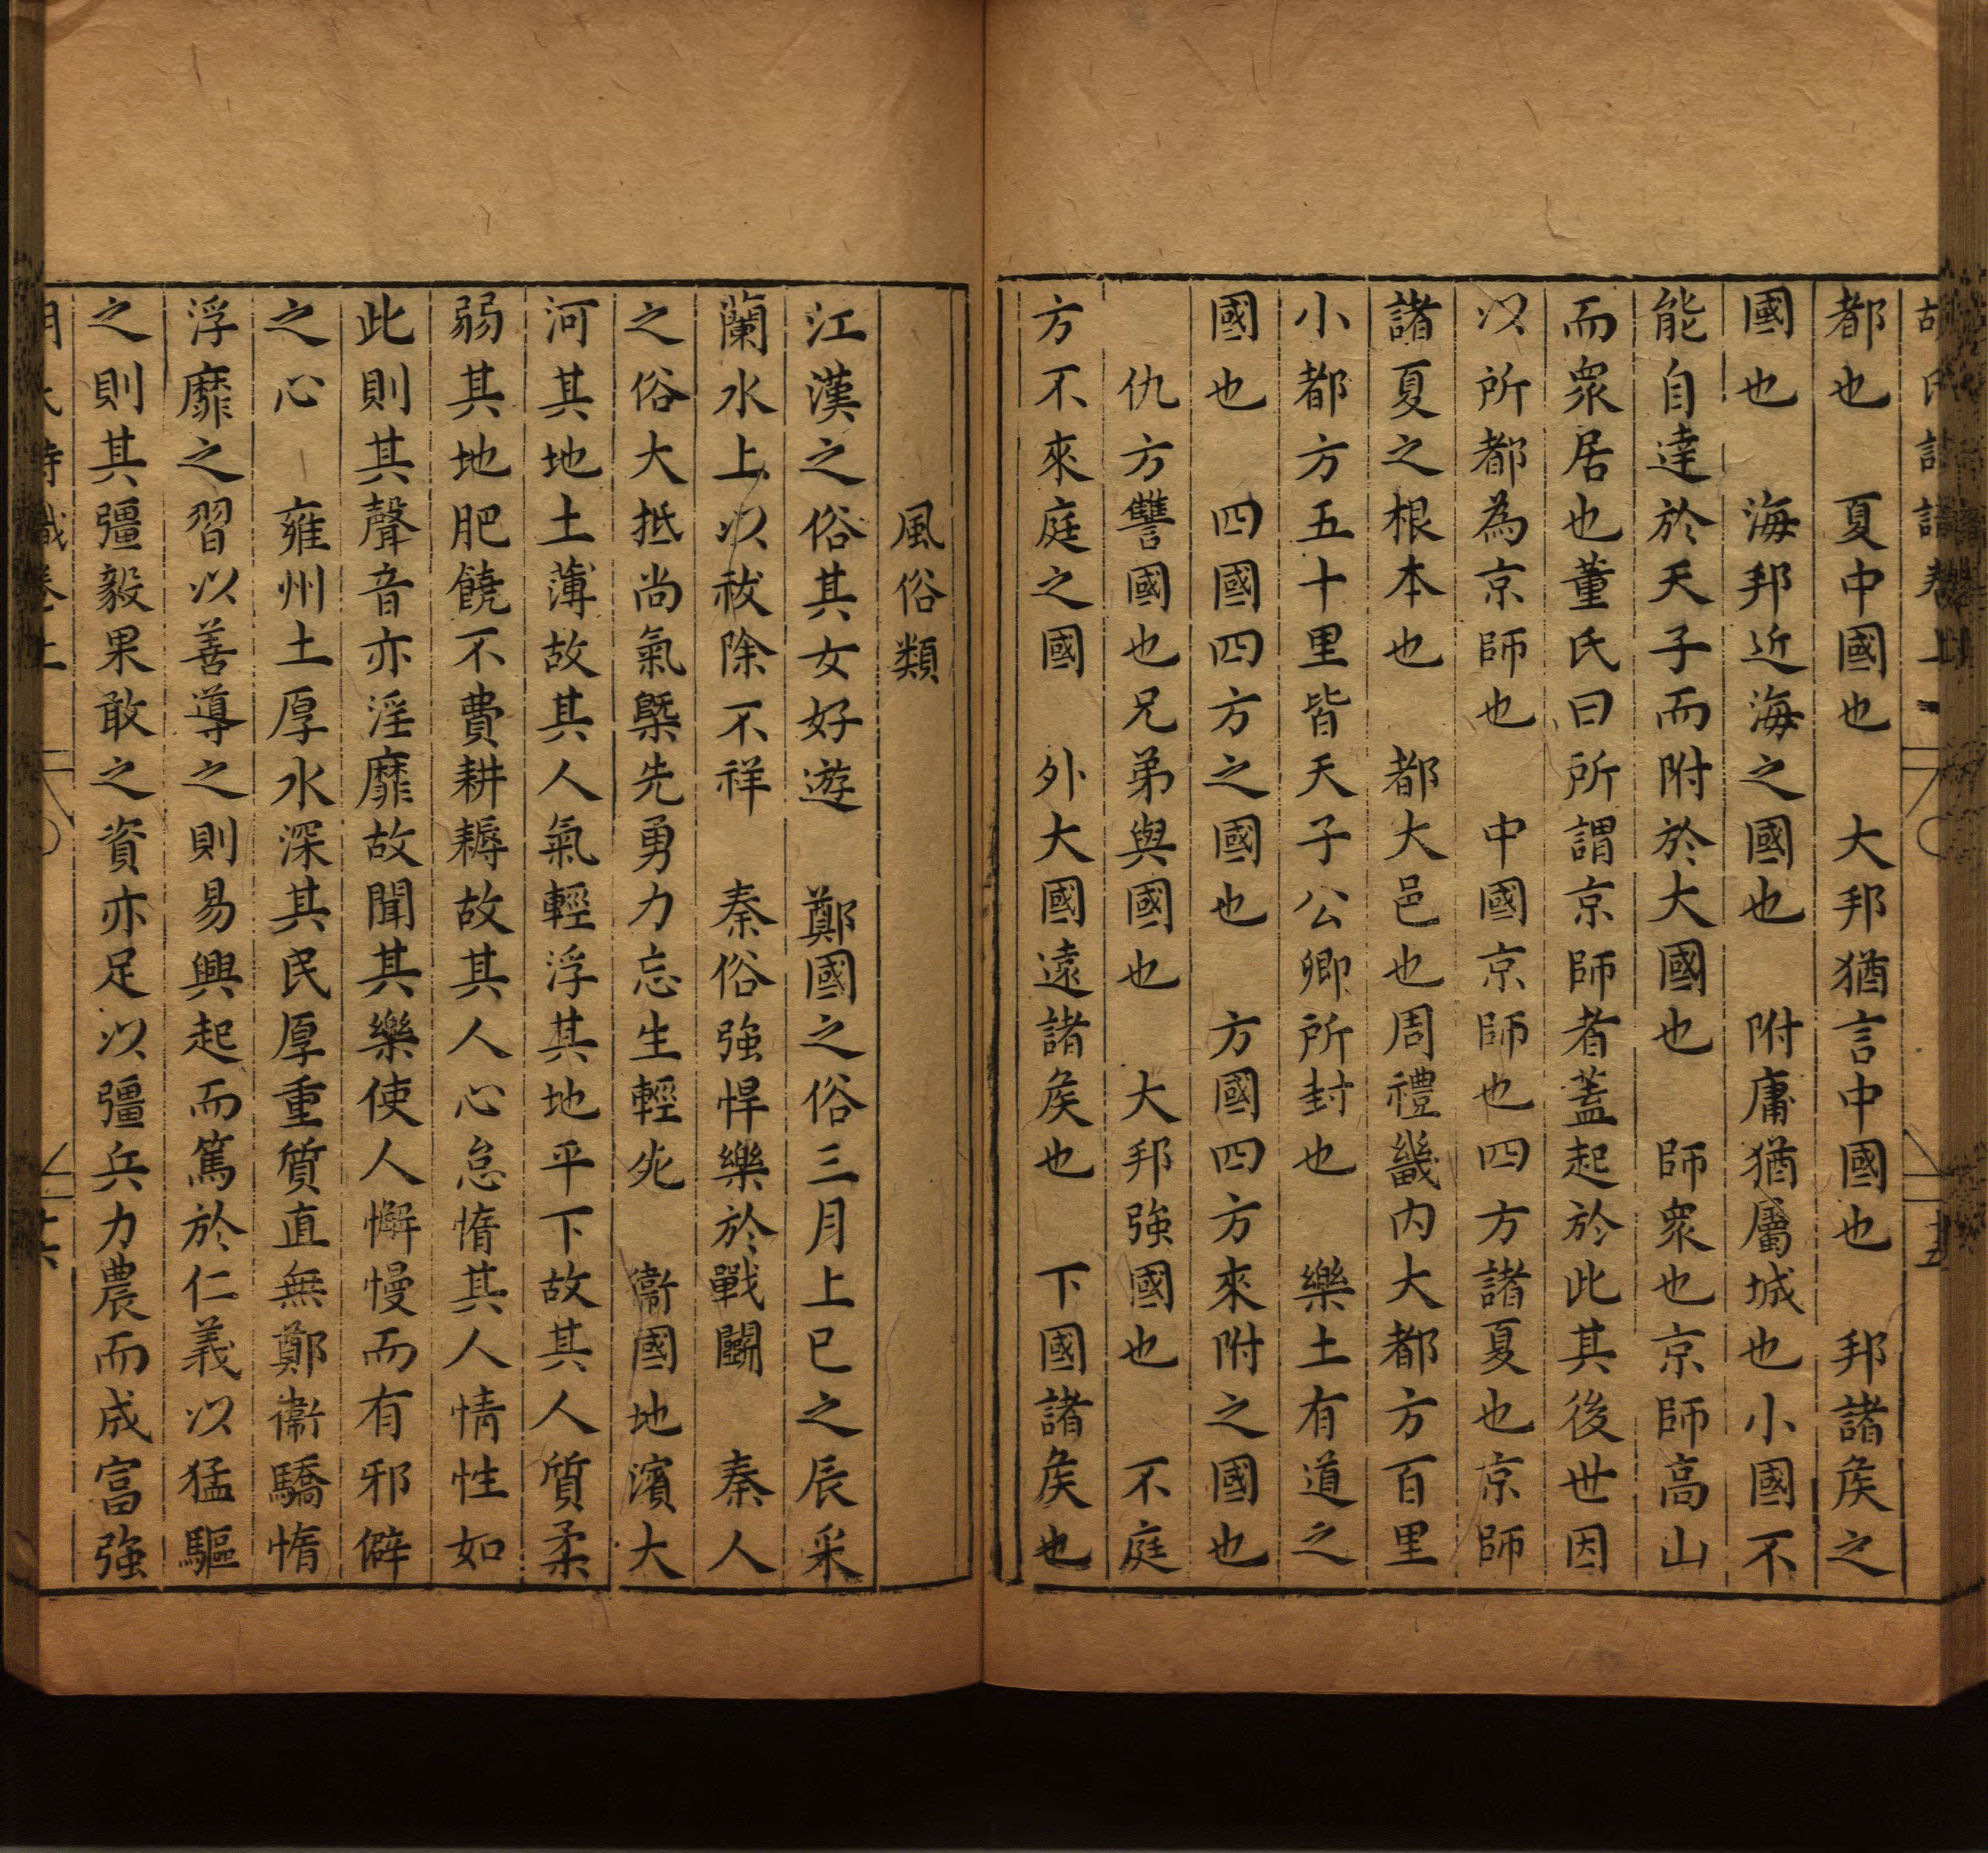 都也　夏中國也　大邦猶言中國也　邦諸矦之
國也　海邦近海之國也　附庸猶屬城也小國不
能自達於天子而附於大國也　師衆也京師高山
而衆居也董氏曰所謂京師者蓋起於此其後世因
以所都為京師也　中國京師也四方諸夏也京師
諸夏之根本也　都大邑也周禮畿内大都方百里
小都方五十里皆天子公卿所封也　樂土有道之
國也　四國四方之國也　方國四方來附之國也
仇方讐國也兄弟與國也　大邦強國也　不庭
方不來庭之國　外大國遠諸矦也　下國諸矦也
風俗類
江漢之俗其女好遊　鄭國之俗三月上巳之辰采
蘭水上以祓除不祥　秦俗強悍樂於戰鬬　秦人
之俗大抵尚氣槩先勇力忘生輕死　衞國地濱大
河其地土薄故其人氣輕浮其地平下故其人質柔
弱其地肥饒不費耕耨故其人心怠惰其人情性如
此則其聲音亦淫靡故聞其樂使人懈慢而有邪僻
之心　雍州土厚水深其民厚重質直無鄭衞驕惰
浮靡之習以善導之則易興起而篤於仁義以猛驅
之則其彊毅果敢之資亦足以彊兵力農而成富強